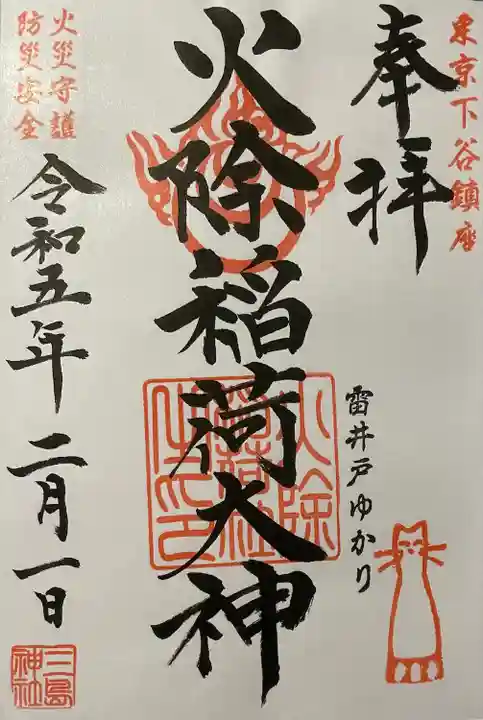 東京下谷鎮座
奉拝
雷井戸ゆかり
火除稲荷大神
火除
稲荷社
之印
火災守護
防災安全
令和五年二月一日
三島
神社